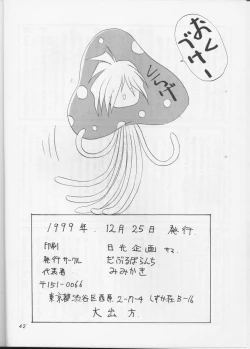 おくづけー
1999年. 12月25日 発行
印刷 日光企画 サマ
発行サークル だぶるぱんち
代表者 みみかき
〒151-0066
東京都渋谷区西原2-17-4 しずか荘B-16
大出 方
42